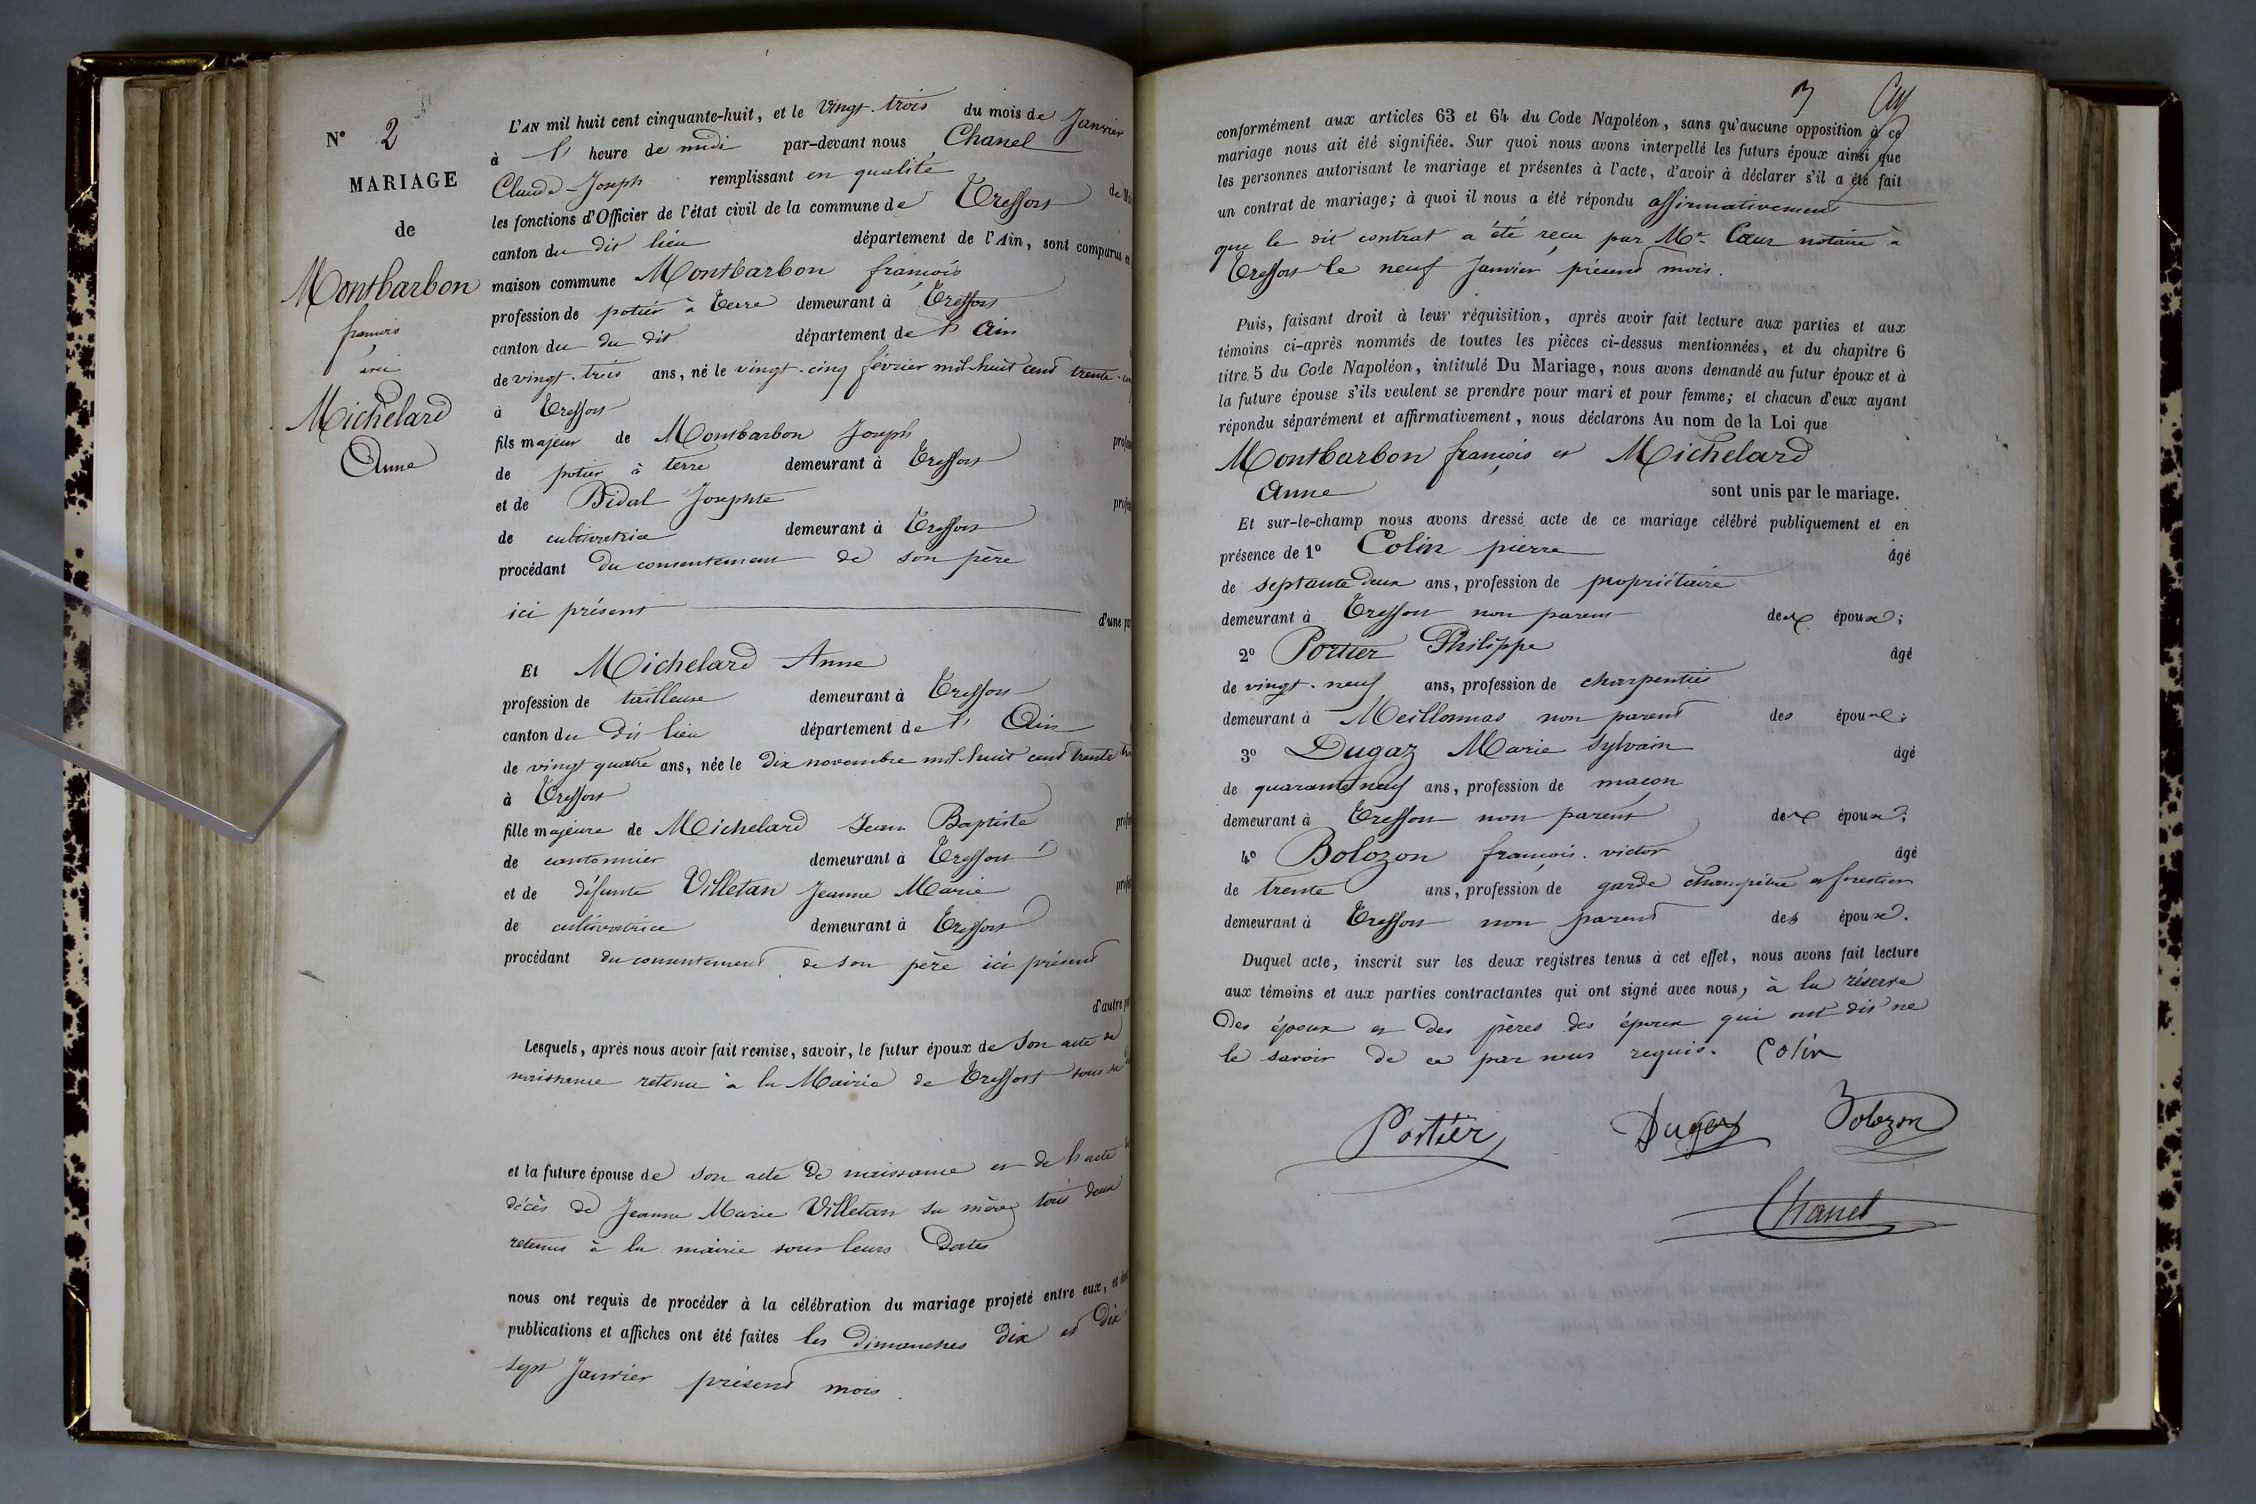 N° 2
MARIAGE
de
Montbarbon
françois
avec
Michelard
Anne
L'AN mil huit cent cinquante-huit, et le vingt-trois du mois de Janvier
à l' heure de midi par-devant nous Chanel
Claude-Joseph remplissant en qualité de
les fonctions d'Officier de l'état civil de la commune de Treffort
canton du dit lieu département de l'Ain, sont comparus en
maison commune Montbarbon françois
profession de potier à terre demeurant à Treffort
canton du du dit département de l'Ain
de vingt-trois ans, né le vingt-cinq février mil-huit cent trente
à Treffort
fils majeur de Montbarbon Joseph
de potier à terre demeurant à Treffort
et de Bidal Josephte
de cultivatrice demeurant à Treffort
procédant du consentement de son père
ici présent d'une
Et Michelard Anne
profession de tailleuse demeurant à Treffort
canton du dit lieu département de l'Ain
de vingt quatre ans, née le dix novembre mil-huit cent trente
à Treffort
fille majeure de Michelard Jean Baptiste
de cantonnier demeurant à Treffort
et de défunte Villetan Jeanne Marie
de cultivatrice demeurant à Treffort
procédant du consentement de son père ici présent
d'autre
Lesquels, après nous avoir fait remise, savoir, le futur époux de son acte de
naissance retenu à la Mairie de Treffort sous sa
et la future épouse de son acte de naissance et de l'acte
décès de Jeanne Marie Villetan sa mère tous deux
retenus à la mairie sous leurs dates
nous ont requis de procéder à la célébration du mariage projeté entre eux, et
publications et affiches ont été faites les dimanches dix et dix
sept Janvier présent mois.
3
conformément aux articles 63 et 64 du Code Napoléon, sans qu'aucune opposition à ce
mariage nous ait été signifiée. Sur quoi nous avons interpellé les futurs époux ainsi que
les personnes autorisant le mariage et présentes à l'acte, d'avoir à déclarer s'il a été fait
un contrat de mariage; à quoi il nous a été répondu affirmativement
que le dit contrat a été reçu par Me Cœur notaire à
Treffort le neuf Janvier présent mois.
Puis, faisant droit à leur réquisition, après avoir fait lecture aux parties et aux
témoins ci-après nommés de toutes les pièces ci-dessus mentionnées, et du chapitre 6
titre 5 du Code Napoléon, intitulé Du Mariage, nous avons demandé au futur époux et à
la future épouse s'ils veulent se prendre pour mari et pour femme; et chacun d'eux ayant
répondu séparément et affirmativement, nous déclarons Au nom de la Loi que
Montbarbon françois et Michelard
Anne sont unis par le mariage.
Et sur-le-champ nous avons dressé acte de ce mariage célébré publiquement et en
présence de 1° Colin pierre âgé
de septante deux ans, profession de propriétaire
demeurant à Treffort non parent des époux;
2° Portier Philippe âgé
de vingt-neuf ans, profession de charpentier
demeurant à Meillonnas non parent des époux;
3° Dugaz Marie Sylvain âgé
de quarante neuf ans, profession de maçon
demeurant à Treffort non parent des époux;
4° Bolozon françois-victor âgé
de trente ans, profession de garde champêtre et forestier
demeurant à Treffort non parent des époux.
Duquel acte, inscrit sur les deux registres tenus à cet effet, nous avons fait lecture
aux témoins et aux parties contractantes qui ont signé avec nous, à la réserve
des époux et des pères des époux qui ont dit ne
le savoir de ce par nous requis. Colin
Portier Dugaz Bolozon
Chanel